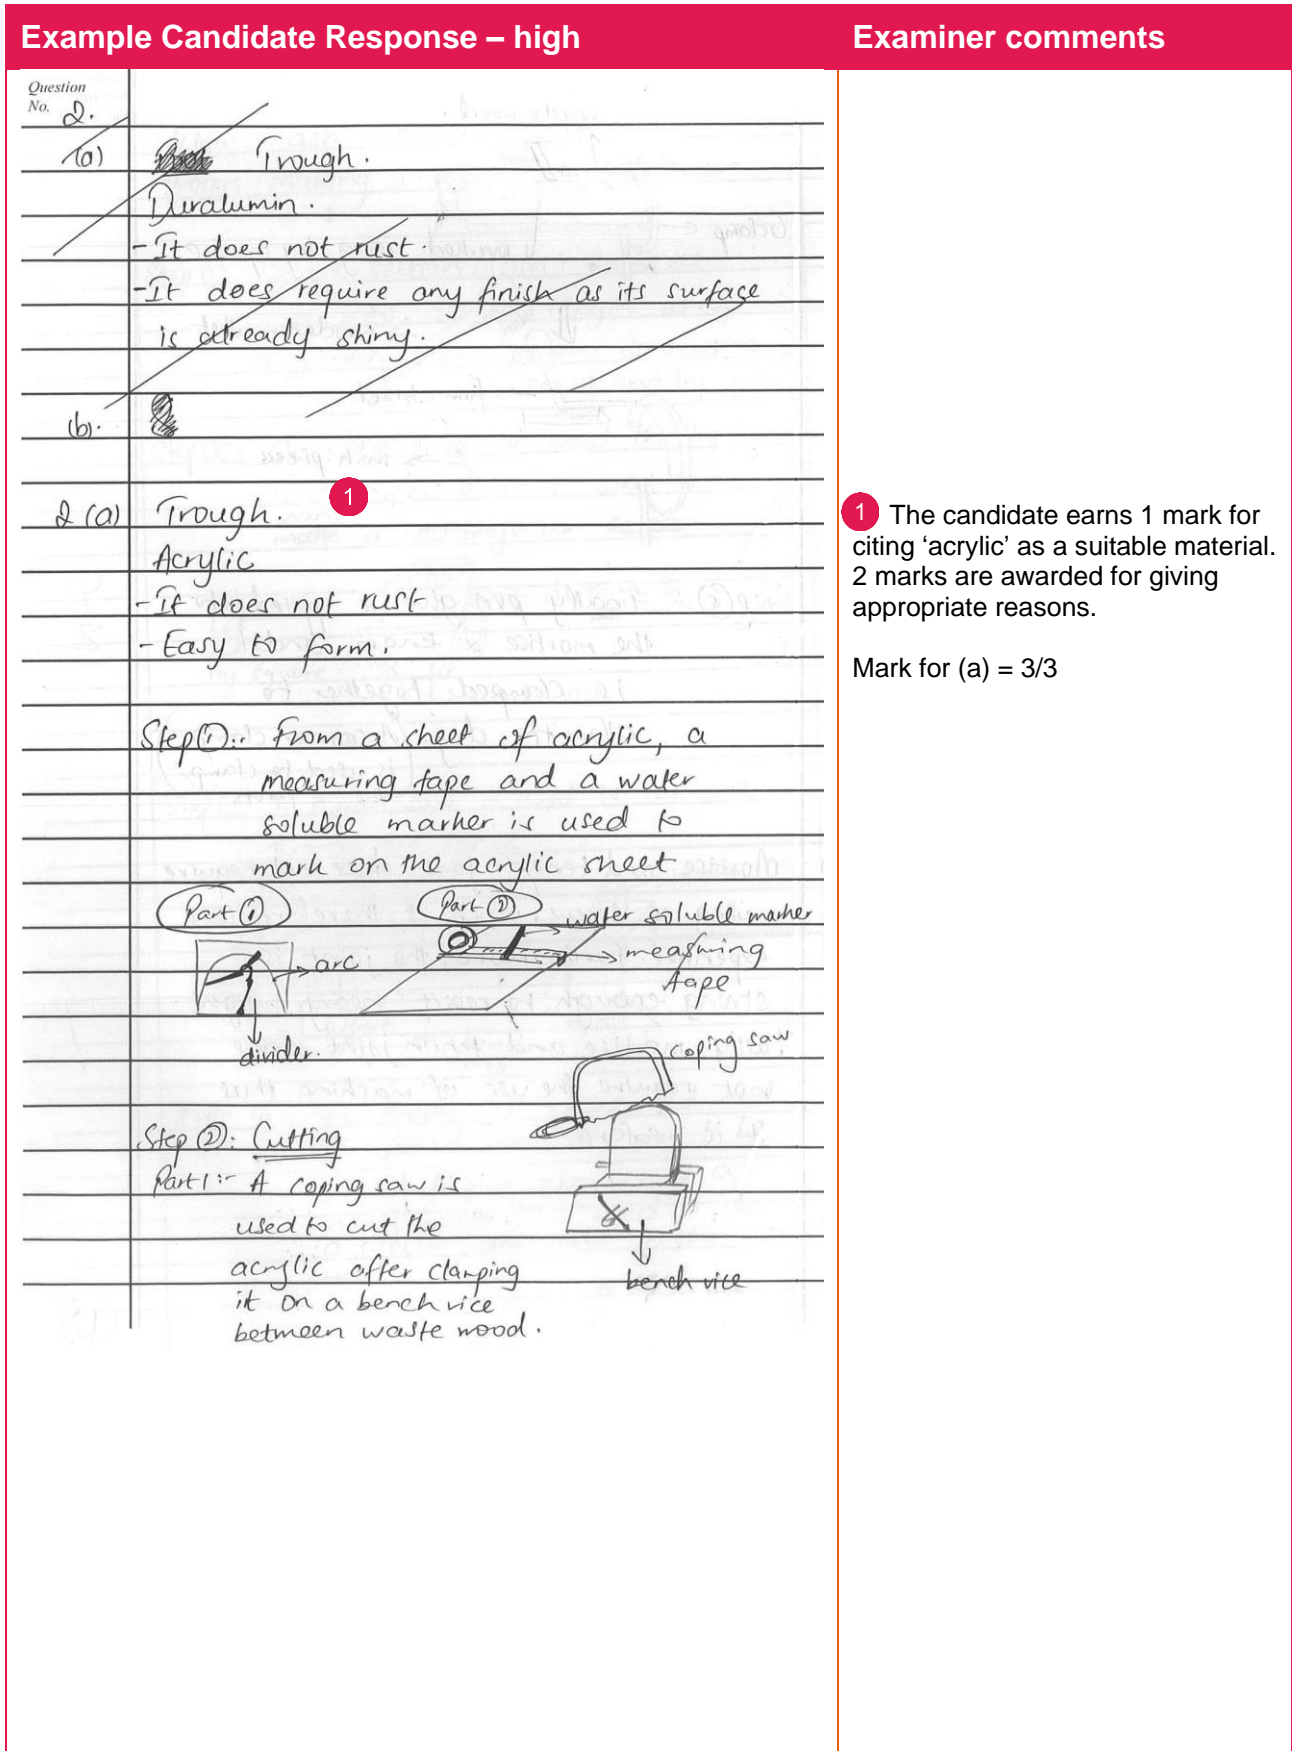 Example Candidate Response – high
Examiner comments
Question
No. 2.
(a) Trough.
Duralumin.
- It does not rust.
- It does require any finish as its surface
is already shiny.
(b).
2 (a) Trough. 1
Acrylic
- It does not rust
- Easy to form.
Step ①:- From a sheet of acrylic, a
measuring tape and a water
soluble marker is used to
mark on the acrylic sheet
Part ① Part ② water soluble marker
arc measuring
tape
divider.
coping saw
Step ②: Cutting
Part 1:- A coping saw is
used to cut the
acrylic after clamping
it on a bench vice
between waste wood.
bench vice
1 The candidate earns 1 mark for
citing ‘acrylic’ as a suitable material.
2 marks are awarded for giving
appropriate reasons.
Mark for (a) = 3/3